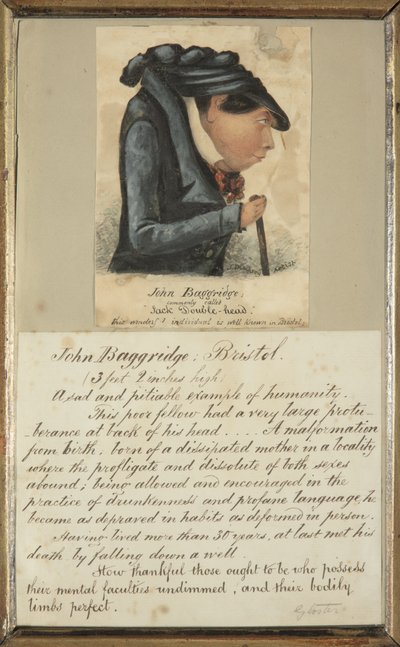 Artist
John Baggridge,
commonly called
Jack Double-head.
this wonderf'l individual is well known in Bristol.
John Baggridge, Bristol.
(3 feet 2 inches high)
A sad and pitiable example of humanity.
This poor fellow had a very large protu-
berance at back of his head . . . . . A malformation
from birth, born of a dissipated mother in a locality
where the profligate and dissolute of both sexes
abound; being allowed and encouraged in the
practice of drunkenness and profane language, he
became as depraved in habits as deformed in person.
Having lived more than 30 years, at last met his
death by falling down a well.
How thankful those ought to be who possess
their mental faculties undimmed, and their bodily
limbs perfect.